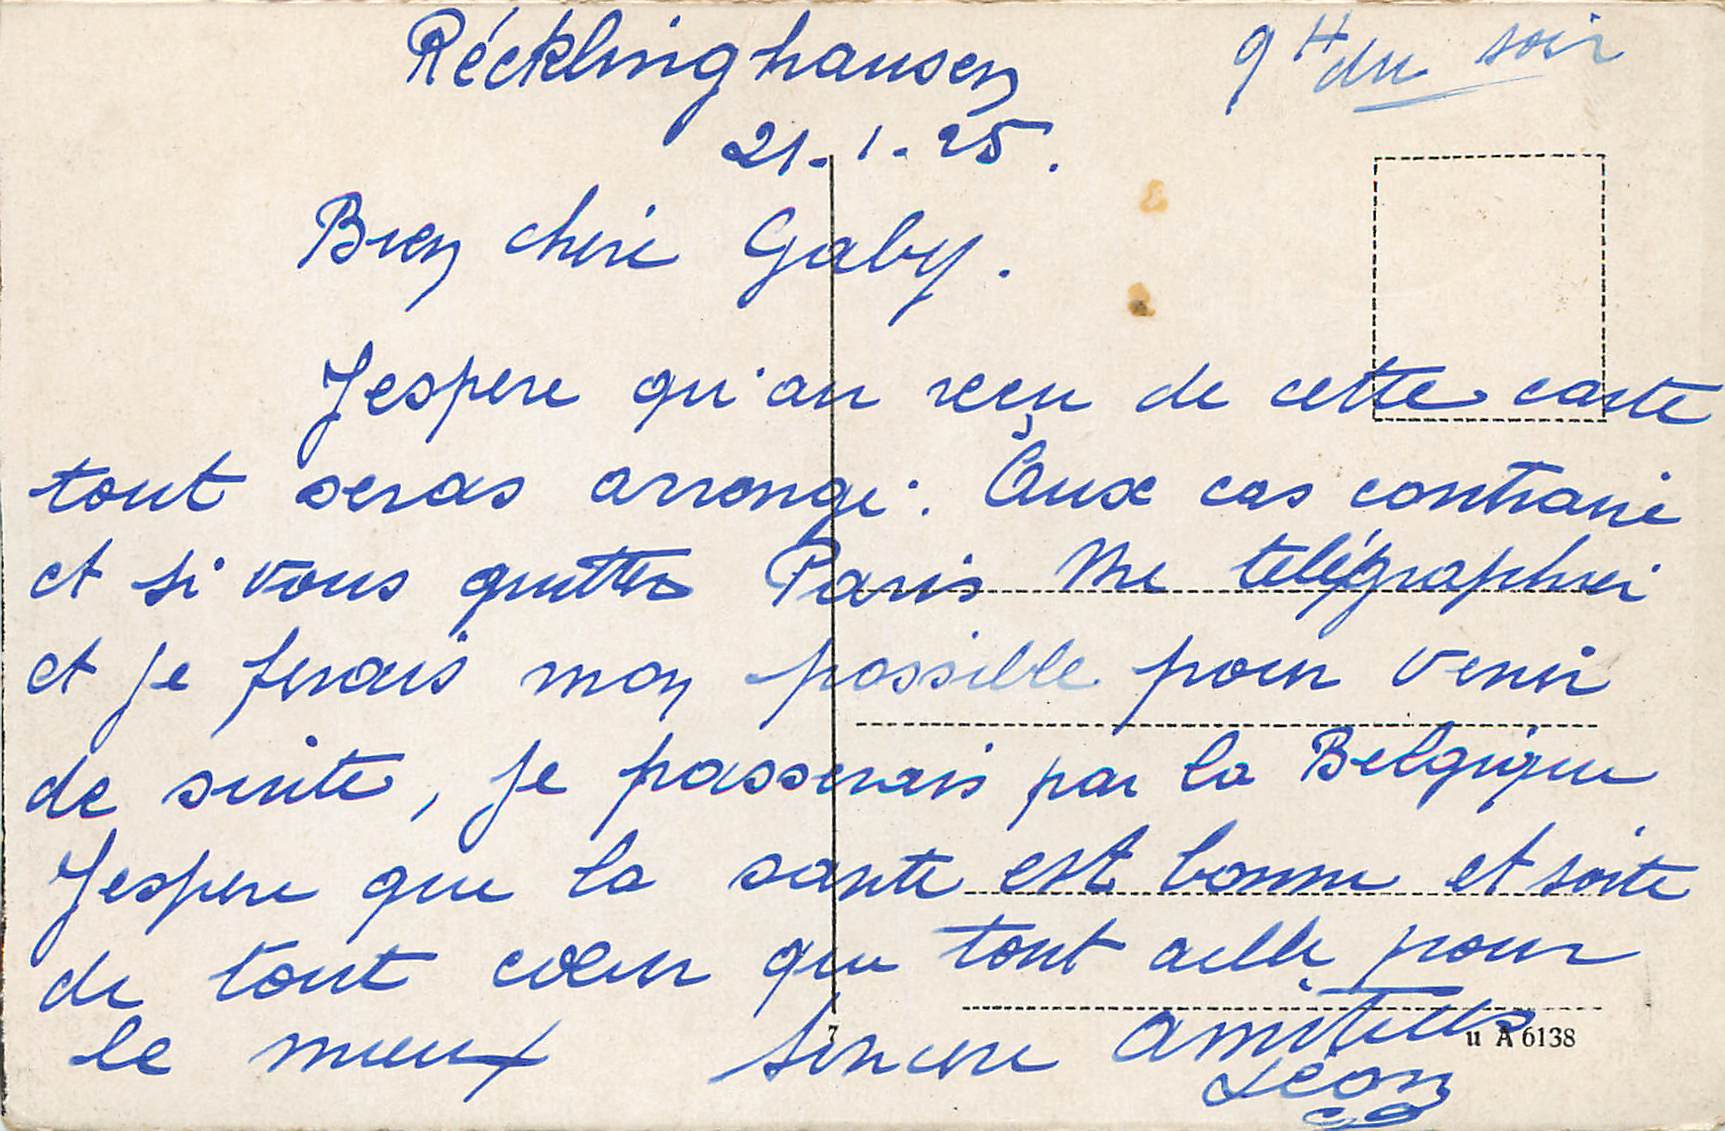 Récklinghausen
9 H du soir
21-1-25.
Bien chéri Gaby.
J'espere qu'au recu de cette carte
tout seras arrangé. Aux cas contraire
et si vous quittez Paris Me télégraphier
et je ferais mon possible pour venir
de suite, je passerais par la Belgique
J'espere que la santé est bonne et
de tout cœur que tout aille pour
le mieux Sincere amitiees
Léon
7
u A 6138